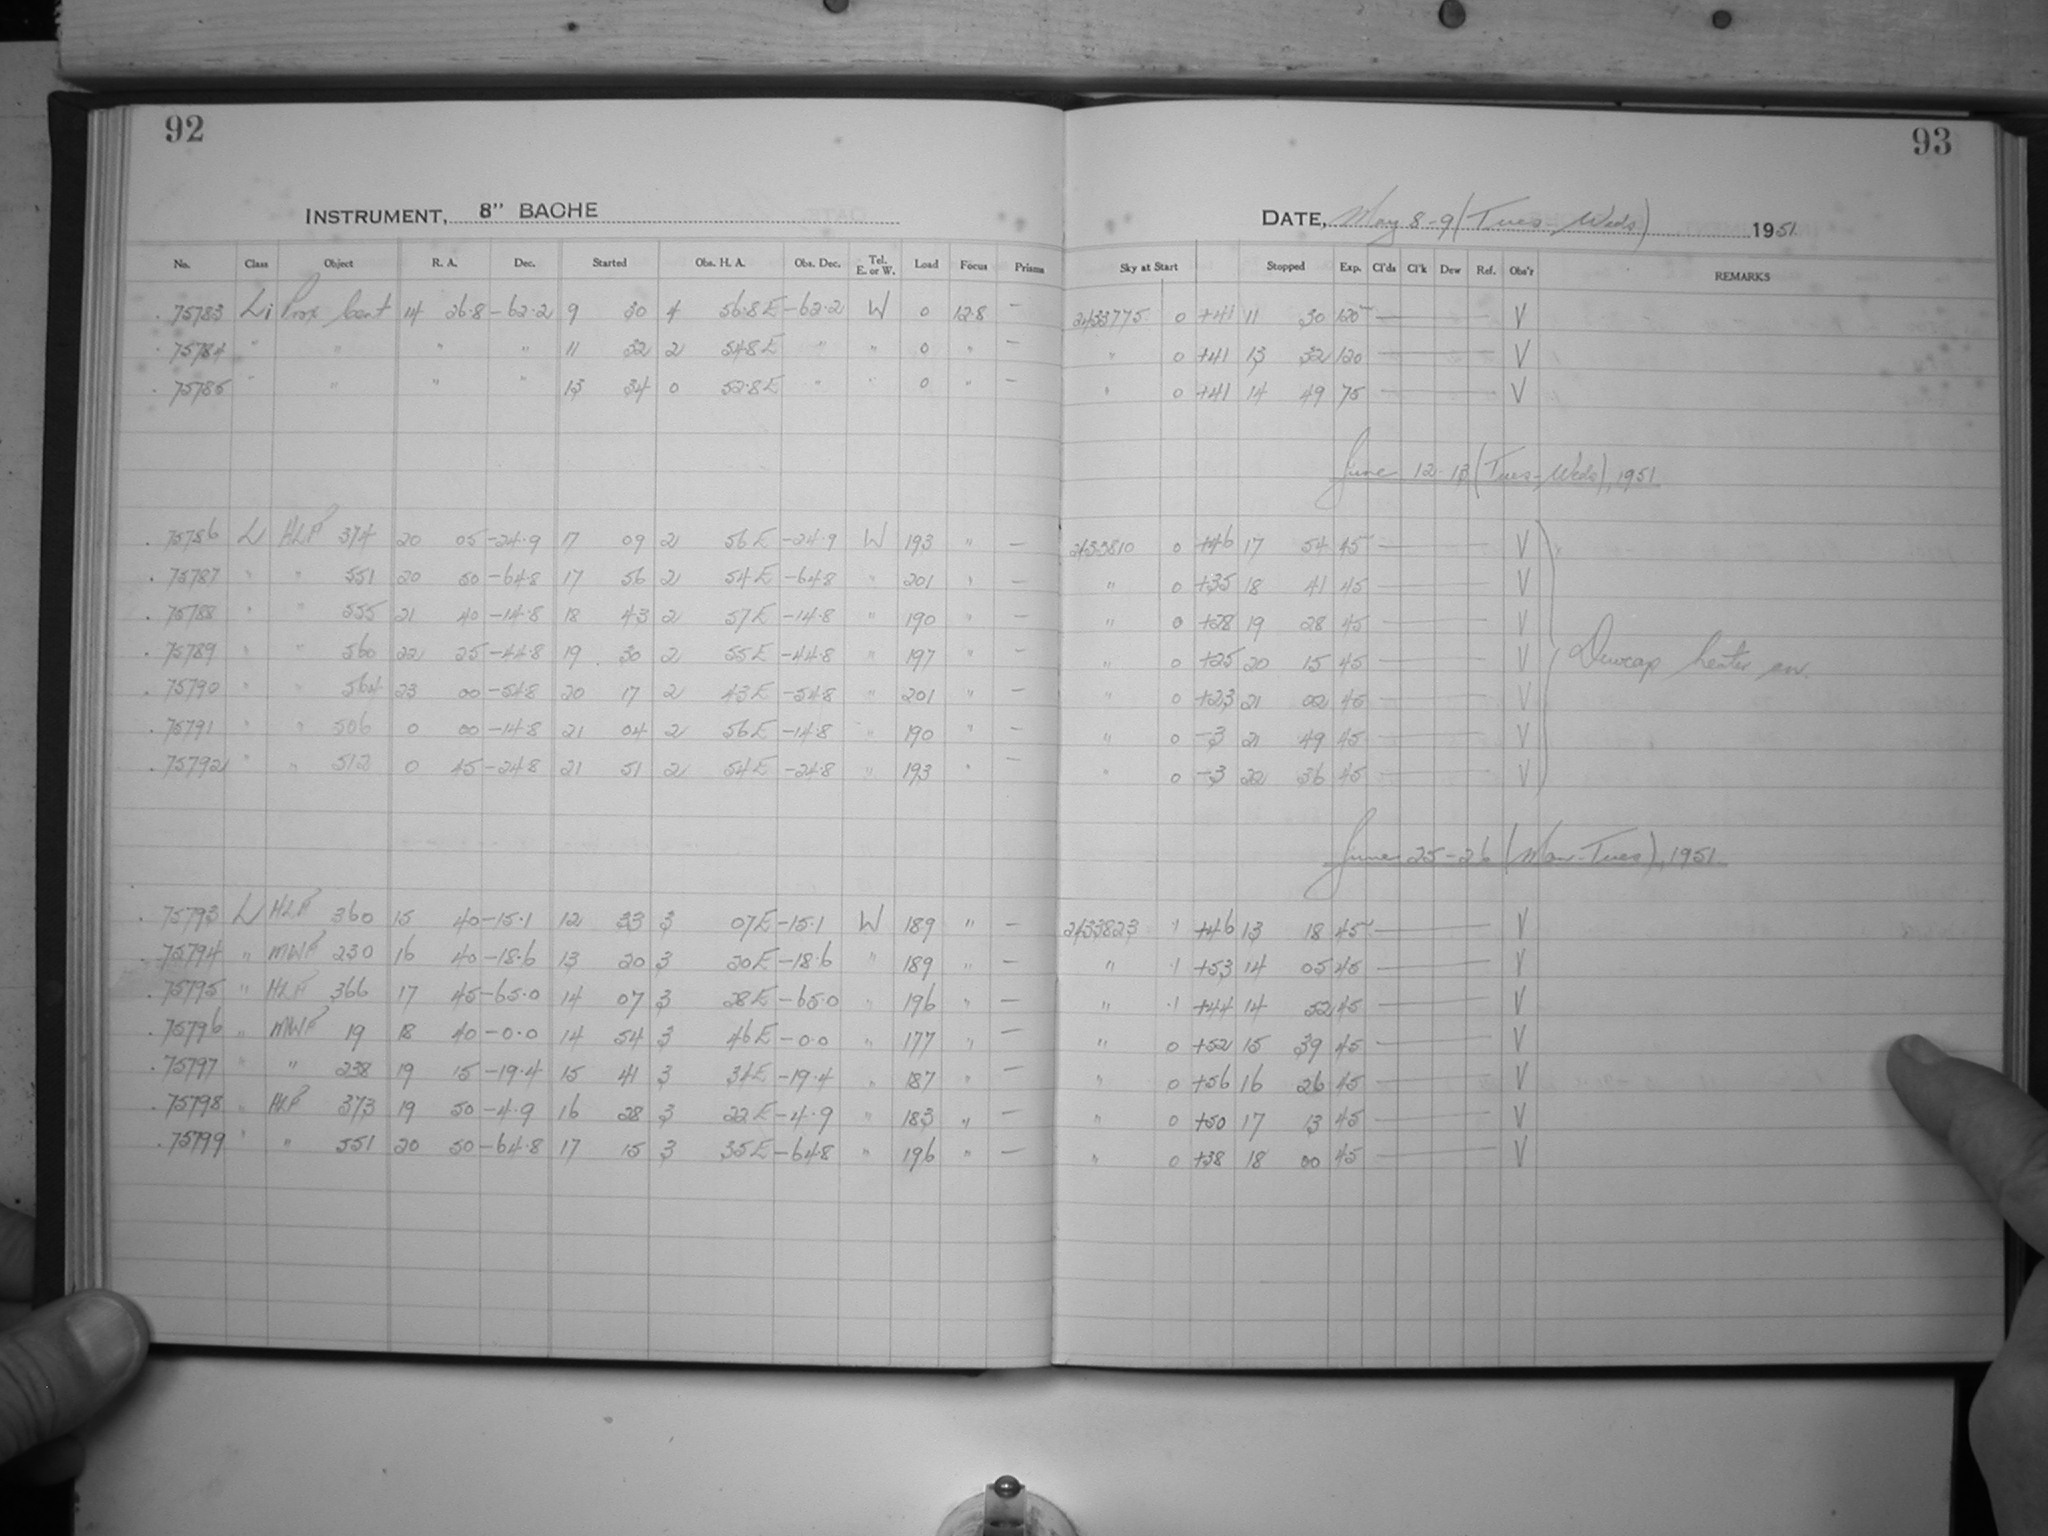 92
93
INSTRUMENT, 8" BACHE
DATE, May 8-9 (Tues-Weds) 1951.
No. Class Object R. A. Dec. Started Obs. H. A. Obs. Dec. Tel. E. or W. Load Focus Prisms Sky at Start Stopped Exp. Cl'ds Cl'k Dew Ref. Obs'r REMARKS
75783 Li Prox Cent 14 26.8 -62.2 9 30 4 56.8E -62.2 W 0 12.8 — 2433775 0 +41 11 30 120 — V
75784 " " " " 11 32 2 54.8E " " 0 " — " 0 +41 13 32 120 — V
75785 " " " " 13 34 0 52.8E " " 0 " — " 0 +41 14 49 75 — V
June 12-13 (Tues-Weds), 1951.
75786 L HLP 374 20 05 -24.9 17 09 2 56E -24.9 W 193 " — 2433810 0 +46 17 54 45 — V
75787 " " 551 20 50 -64.8 17 56 2 54E -64.8 " 201 " — " 0 +35 18 41 45 — V
75788 " " 555 21 40 -14.8 18 43 2 57E -14.8 " 190 " — " 0 +28 19 28 45 — V
75789 " " 560 22 25 -44.8 19 30 2 55E -44.8 " 197 " — " 0 +25 20 15 45 — V Dewcap heater on.
75790 " " 564 23 00 -54.8 20 17 2 43E -54.8 " 201 " — " 0 +23 21 02 45 — V
75791 " " 506 0 00 -14.8 21 04 2 56E -14.8 " 190 " — " 0 -3 21 49 45 — V
75792 " " 512 0 45 -24.8 21 51 2 54E -24.8 " 193 " — " 0 -3 22 36 45 — V
June 25-26 (Mon-Tues), 1951.
75793 L HLP 360 15 40 -15.1 12 33 3 07E -15.1 W 189 " — 2433823 .1 +46 13 18 45 — V
75794 " MWF 230 16 40 -18.6 13 20 3 20E -18.6 " 189 " — " .1 +53 14 05 45 — V
75795 " HLP 366 17 45 -65.0 14 07 3 28E -65.0 " 196 " — " .1 +44 14 52 45 — V
75796 " MWF 19 18 40 -0.0 14 54 3 46E -0.0 " 177 " — " 0 +52 15 39 45 — V
75797 " " 238 19 15 -19.4 15 41 3 34E -19.4 " 187 " — " 0 +56 16 26 45 — V
75798 " HLP 373 19 50 -4.9 16 28 3 22E -4.9 " 183 " — " 0 +50 17 13 45 — V
75799 " " 551 20 50 -64.8 17 15 3 35E -64.8 " 196 " — " 0 +38 18 00 45 — V